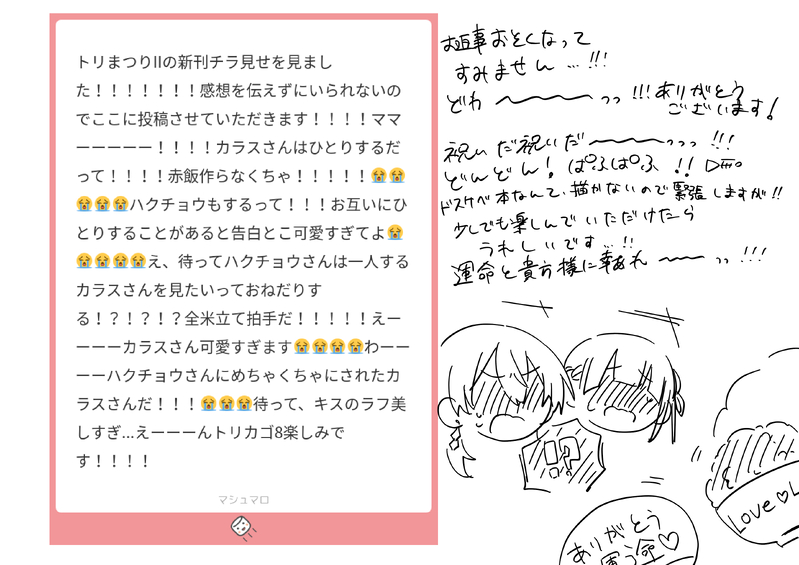 トリまつりIIの新刊チラ見せを見まし
た！！！！！！！感想を伝えずにいられないの
でここに投稿させていただきます！！！！ママ
ーーーーー！！！！カラスさんはひとりするだ
って！！！！赤飯作らなくちゃ！！！！！😭😭
😭😭😭ハクチョウもするって！！！お互いにひ
とりすることがあると告白とこ可愛すぎてよ😭
😭😭😭😭え、待ってハクチョウさんは一人する
カラスさんを見たいっておねだりす
る！？！？！？全米立て拍手だ！！！！！えー
ーーーカラスさん可愛すぎます😭😭😭😭わーー
ーーハクチョウさんにめちゃくちゃにされたカ
ラスさんだ！！！😭😭😭待って、キスのラフ美
しすぎ…えーーーんトリカゴ8楽しみで
す！！！！
マシュマロ
お返事おそくなって
すみません…!!!
どわ〜〜〜っっ!!!ありがとう
ございます!
祝いだ祝いだ〜〜〜っっっ!!!
どんどん!ぱふぱふ!!
ドスケベ本なんて、描かないので緊張しますが!!
少しでも楽しんでいただけたら
うれしいです…!!
運命と貴方様に幸あれ〜〜っっ!!!
!?
LOVE♡L
ありがとう